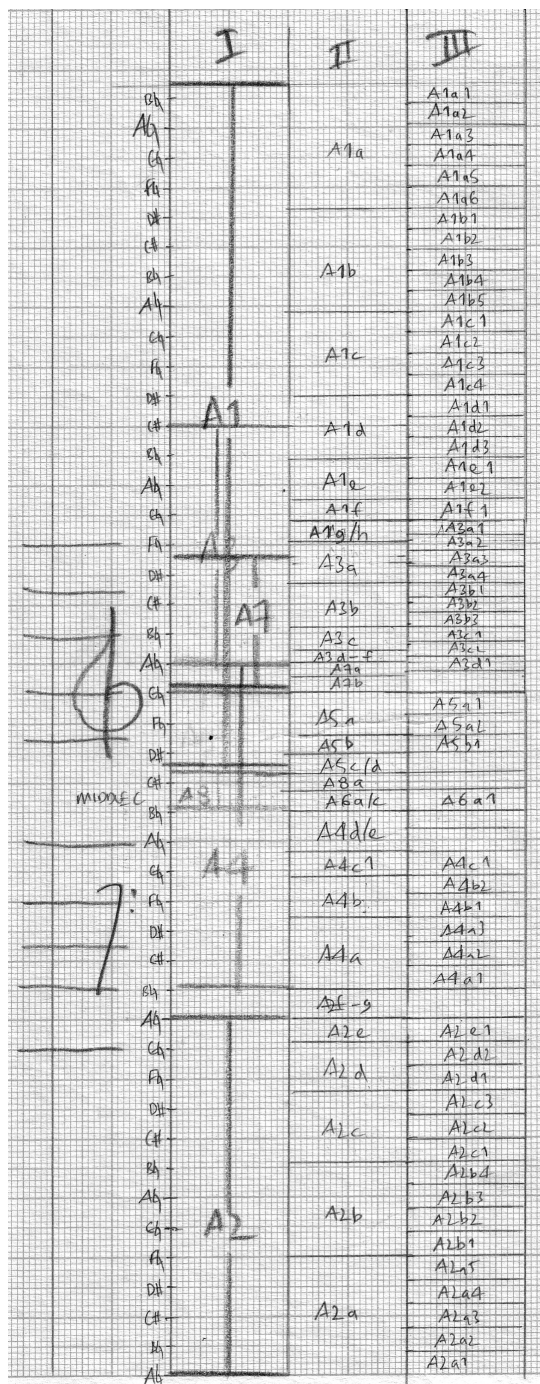 I II III
B♮
A♮
G♮
F♮
D#
C#
B♮
A♮
G♮
F♮
D#
C#
B♮
A♮
G♮
F♮
D#
C#
B♮
A♮
G♮
F♮
D#
C#
B♮
A♮
G♮
F♮
D#
C#
B♮
A♮
G♮
F♮
D#
C#
B♮
A♮
G♮
F♮
D#
C#
B♮
A♮
MIDDLE C
A1
A7
A8
A4
A2
A1a
A1b
A1c
A1d
A1e
A1f
A1g/h
A3a
A3b
A3c
A3d-f
A7a
A7b
A5a
A5b
A5c/d
A8a
A6a/c
A4d/e
A4c1
A4b
A4a
A2f-g
A2e
A2d
A2c
A2b
A2a
A1a1
A1a2
A1a3
A1a4
A1a5
A1a6
A1b1
A1b2
A1b3
A1b4
A1b5
A1c1
A1c2
A1c3
A1c4
A1d1
A1d2
A1d3
A1e1
A1e2
A1f1
A3a1
A3a2
A3a3
A3a4
A3b1
A3b2
A3b3
A3c1
A3c2
A3d1
A5a1
A5a2
A5b1
A6a1
A4c1
A4b2
A4b1
A4a3
A4a2
A4a1
A2e1
A2d2
A2d1
A2c3
A2c2
A2c1
A2b4
A2b3
A2b2
A2b1
A2a5
A2a4
A2a3
A2a2
A2a1